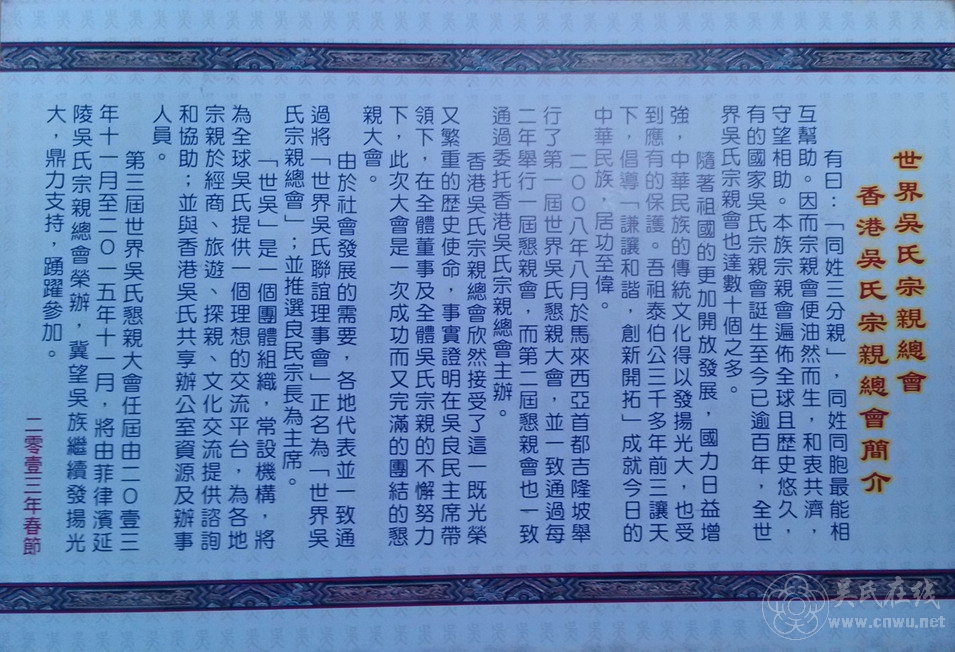 世界吳氏宗親總會
香港吳氏宗親總會簡介
有曰：「同姓三分親」，同姓同胞最能相
互幫助。因而宗親會便油然而生，和衷共濟，
守望相助。本族宗親會遍佈全球且歷史悠久，
有的國家吳氏宗親會誕生至今已逾百年，全世
界吳氏宗親會也達數十個之多。
隨著祖國的更加開放發展，國力日益增
強，中華民族的傳統文化得以發揚光大，也受
到應有的保護。吾祖泰伯公三千多年前三讓天
下，倡導「謙讓和諧，創新開拓」成就今日的
中華民族，居功至偉。
二００八年八月於馬來西亞首都吉隆坡舉
行了第一屆世界吳氏懇親大會，並一致通過每
二年舉行一屆懇親會，而第二屆懇親會也一致
通過委托香港吳氏宗親總會主辦。
香港吳氏宗親總會欣然接受了這一既光榮
又繁重的歷史使命，事實證明在吳良民主席帶
領下，在全體董事及全體吳氏宗親的不懈努力
下，此次大會是一次成功而又完滿的團結的懇
親大會。
由於社會發展的需要，各地代表並一致通
過將「世界吳氏聯誼理事會」正名為「世界吳
氏宗親總會」；並推選良民宗長為主席。
「世吳」是一個團體組織，常設機構，將
為全球吳氏提供一個理想的交流平台，為各地
宗親於經商、旅遊、探親、文化交流提供諮詢
和協助；並與香港吳氏共享辦公室資源及辦事
人員。
第三屆世界吳氏懇親大會任屆由二０壹三
年十一月至二０一五年十一月，將由菲律濱延
陵吳氏宗親總會榮辦，冀望吳族繼續發揚光
大，鼎力支持，踴躍參加。
二零壹三年春節
吴氏在线
www.cnwu.net